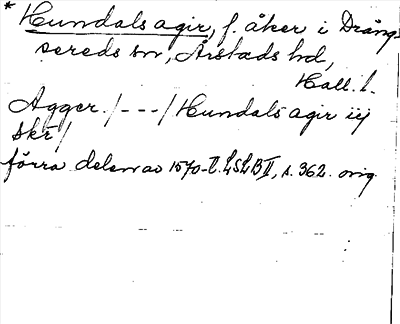 * Hundals agir, f. åker i Drängs
sereds sn, Årstads hd,
Hall. l.
Agger /---/ Hundals agir iij
skr/
förra delen av 1570-t. LSLB II, s. 362. orig.